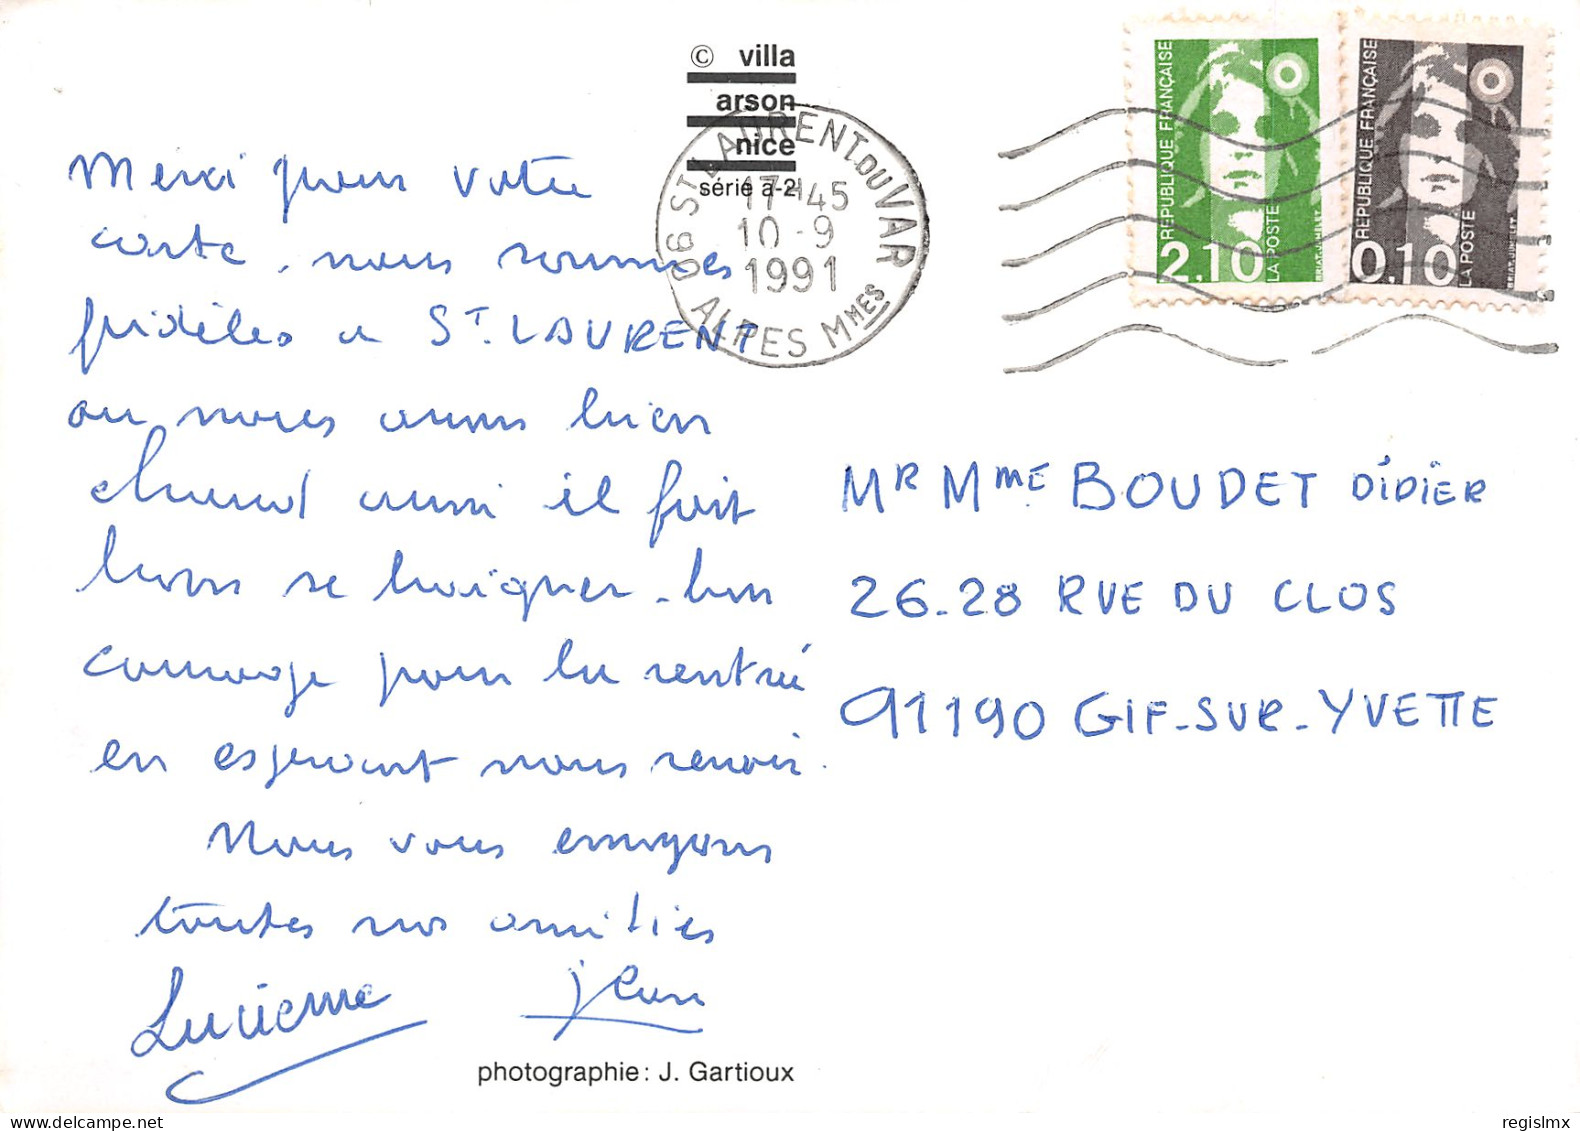 © villa
arson
nice
série a-2
06 ST LAURENT DU VAR
17H45
10-9
1991
ALPES MMES
RÉPUBLIQUE FRANÇAISE
2,10
LA POSTE
BRIAT-JUMELET
RÉPUBLIQUE FRANÇAISE
0,10
LA POSTE
BRIAT-JUMELET
Merci pour votre
carte, nous sommes
fidèles a ST. LAURENT
ou nous avons bien
chaud aussi il fait
bons se baigner - bon
courage pour la rentrée
en esperant nous revoir.
Nous vous envoyons
toutes nos amitiés
Lucienne Jean
MR MME BOUDET DIDIER
26-28 RUE DU CLOS
91190 GIF-SUR-YVETTE
photographie: J. Gartioux
regislmx